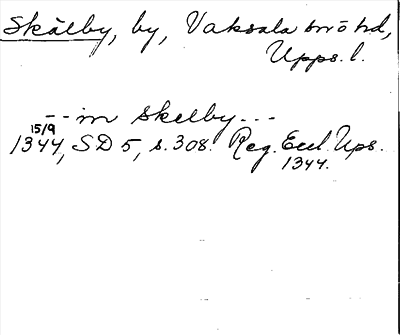 Skälby, by, Vaksala sn o hd,
Upps. l.
-- in Skelby ...
15/9
1344, SD 5, s. 308. Reg. Eccl. Ups.
1344.